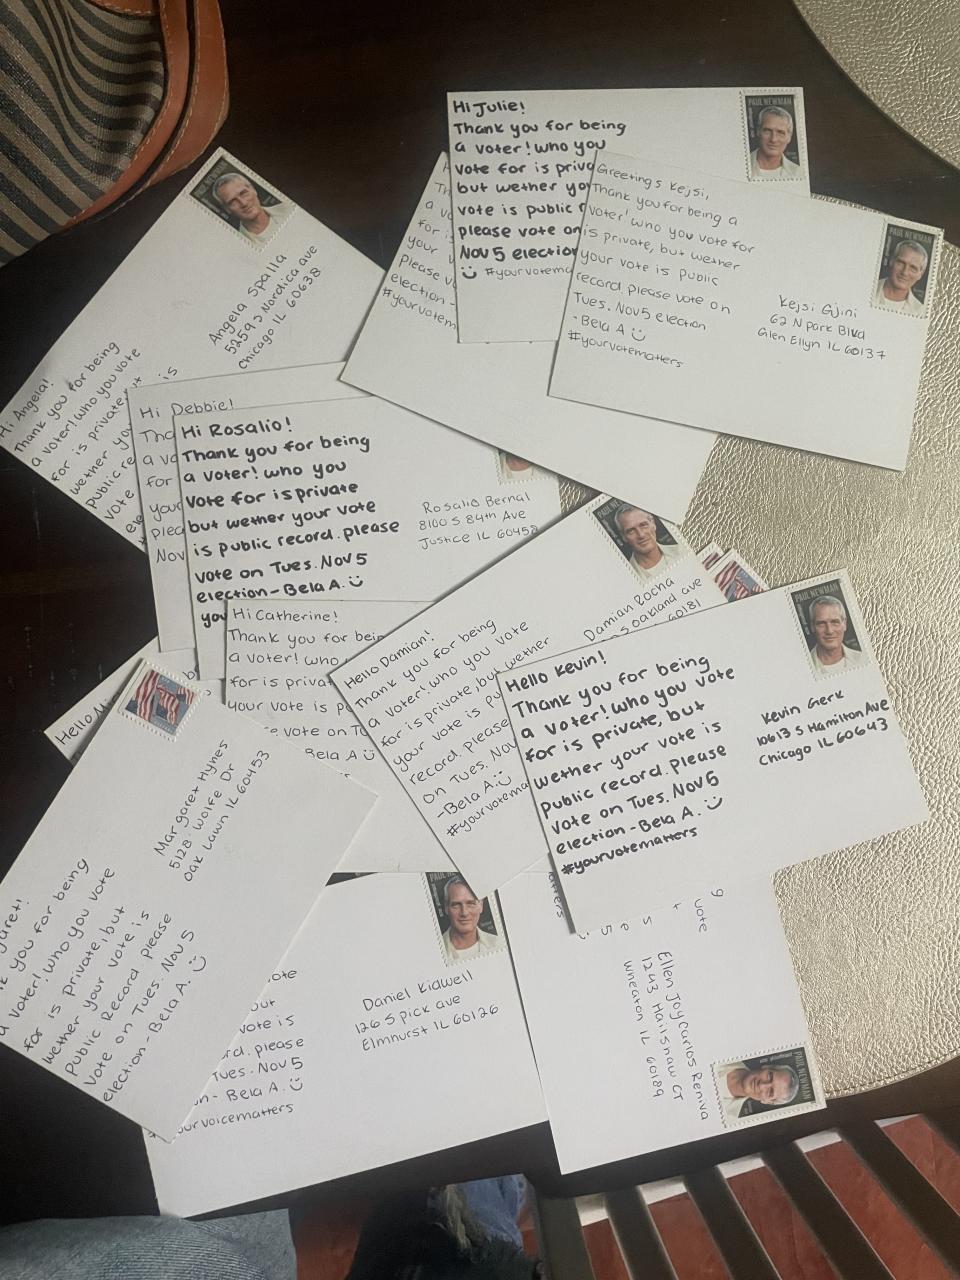 Hi Julie!
Thank you for being
a voter! who you
vote for is priva
but wether yo
vote is public r
please vote on
Nov 5 election
#yourvotema
PAUL NEWMAN
Greetings Kejsi,
Thank you for being a
voter! who you vote for
is private, but wether
your vote is public
record. please vote on
Tues. Nov 5 election
- Bela A
#yourvotematters
Kejsi Gjini
62 N Park Blvd
Glen Ellyn IL 60137
PAUL NEWMAN
a v
for is
your
Please v
election -
#yourvotem
Angela Spalla
Chicago IL 60638
Hi Angela!
Thank you for being
a voter! who you vote
for is private, but
wether you is
public re
vote
ele
Hi Debbie!
Tha
a vo
for
your
plea
Nov
Hi Rosalio!
Thank you for being
a voter! who you
vote for is private
but wether your vote
is public record. please
vote on Tues. Nov 5
election - Bela A.
you
Rosalio Bernal
8100 S 84th Ave
Justice IL 60458
Hi Catherine!
Thank you for bein
a voter! who
for is privat
your vote is p
e vote on Tu
Bela A
Hello Damian!
Thank you for being
a voter! who you vote
for is private, but wether
your vote is pu
record. please
on Tues. Nov
- Bela A.
#yourvotema
Damian Rocha
S Oakland ave
60181
Hello Kevin!
Thank you for being
a voter! who you vote
for is private, but
wether your vote is
public record. please
vote on Tues. Nov 5
election - Bela A.
#yourvotematters
Kevin Gerk
10613 S Hamilton Ave
Chicago IL 60643
PAUL NEWMAN
Hello M
Margaret Hynes
5128 Wolfe Dr
Oak Lawn IL 60453
garet!
k you for being
a voter! who you vote
for is private, but
wether your vote is
public Record please
vote on Tues. Nov 5
election - Bela A.
ote
but
vote is
rd. please
Tues. Nov 5
n - Bela A.
ourvoicematters
Daniel Kidwell
126 S pick ave
Elmhurst IL 60126
vote
Ellen Joy Carlos Reniva
1243 Hailshaw CT
Wheaton IL 60189
PAUL NEWMAN